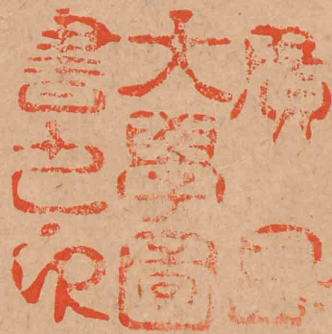 廣
大學圖
書之印